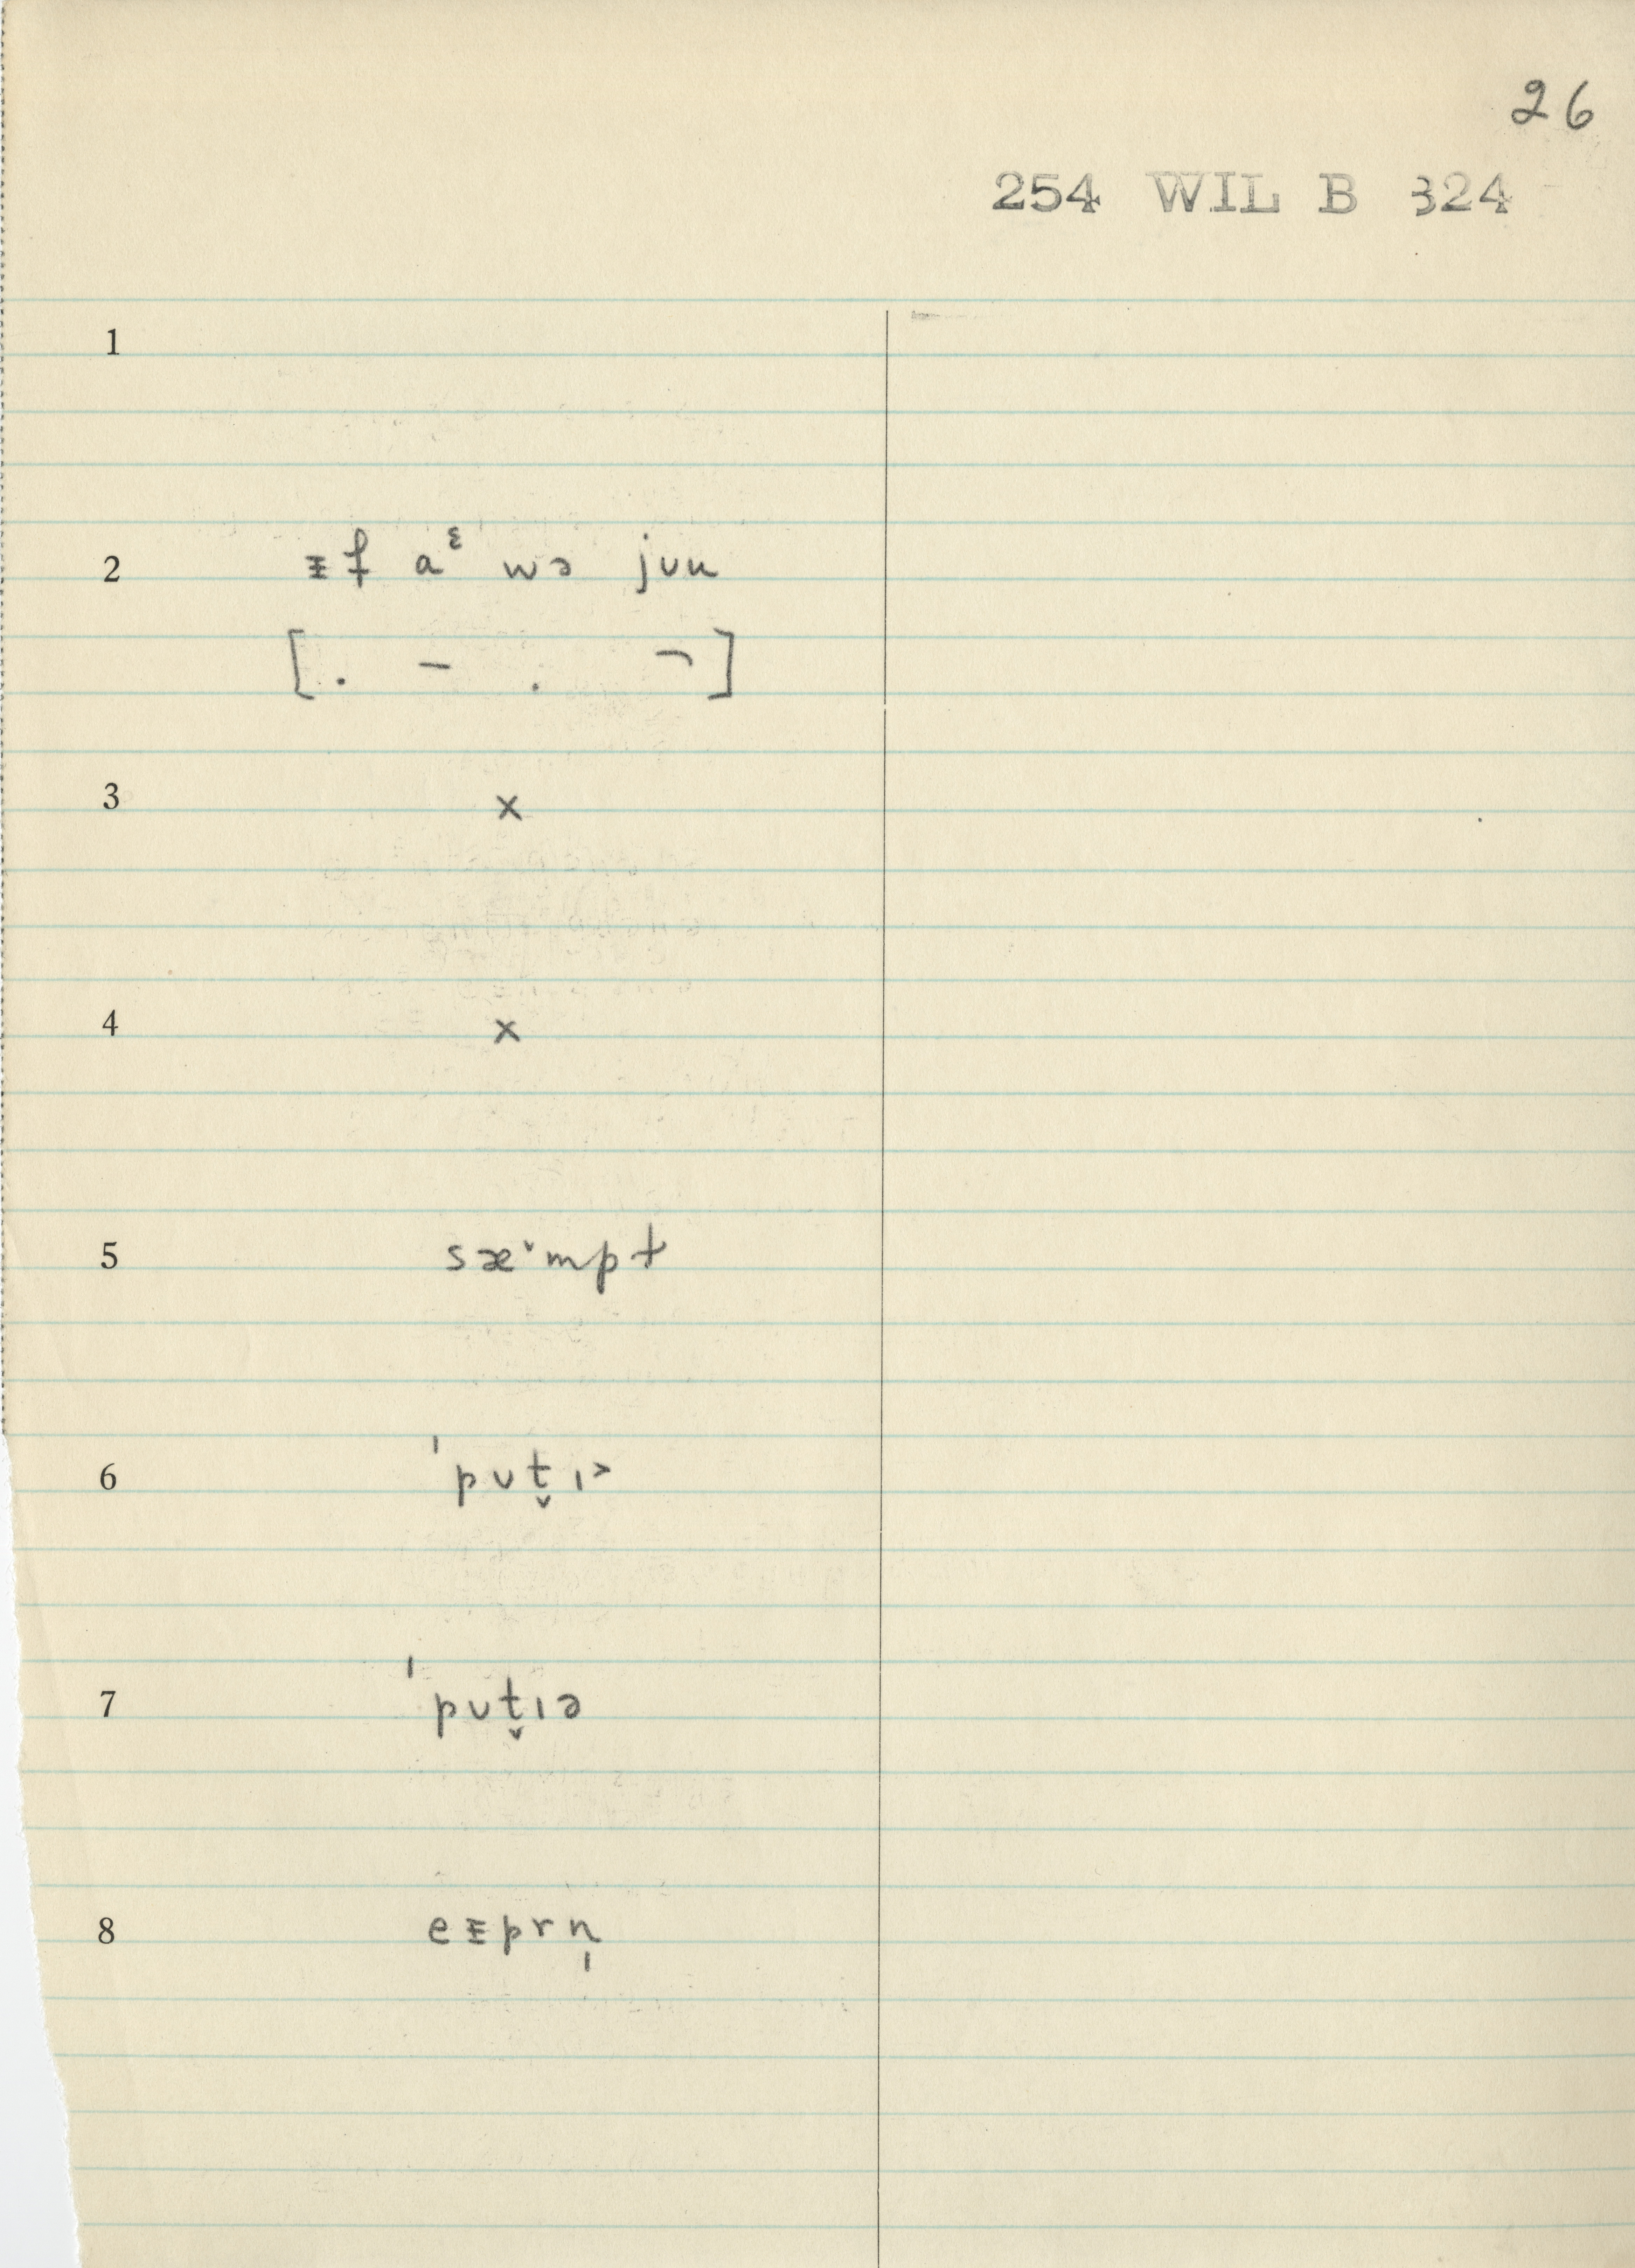 26
254 WIL B 324
1
2 ᵻf aᵋ wə jʊu
[. – . ¬]
3 x
4 x
5 sæ˅mpt
6 ˈpʊt̬ɪɚ
7 ˈpʊt̬ɪə
8 eᵻprn̩